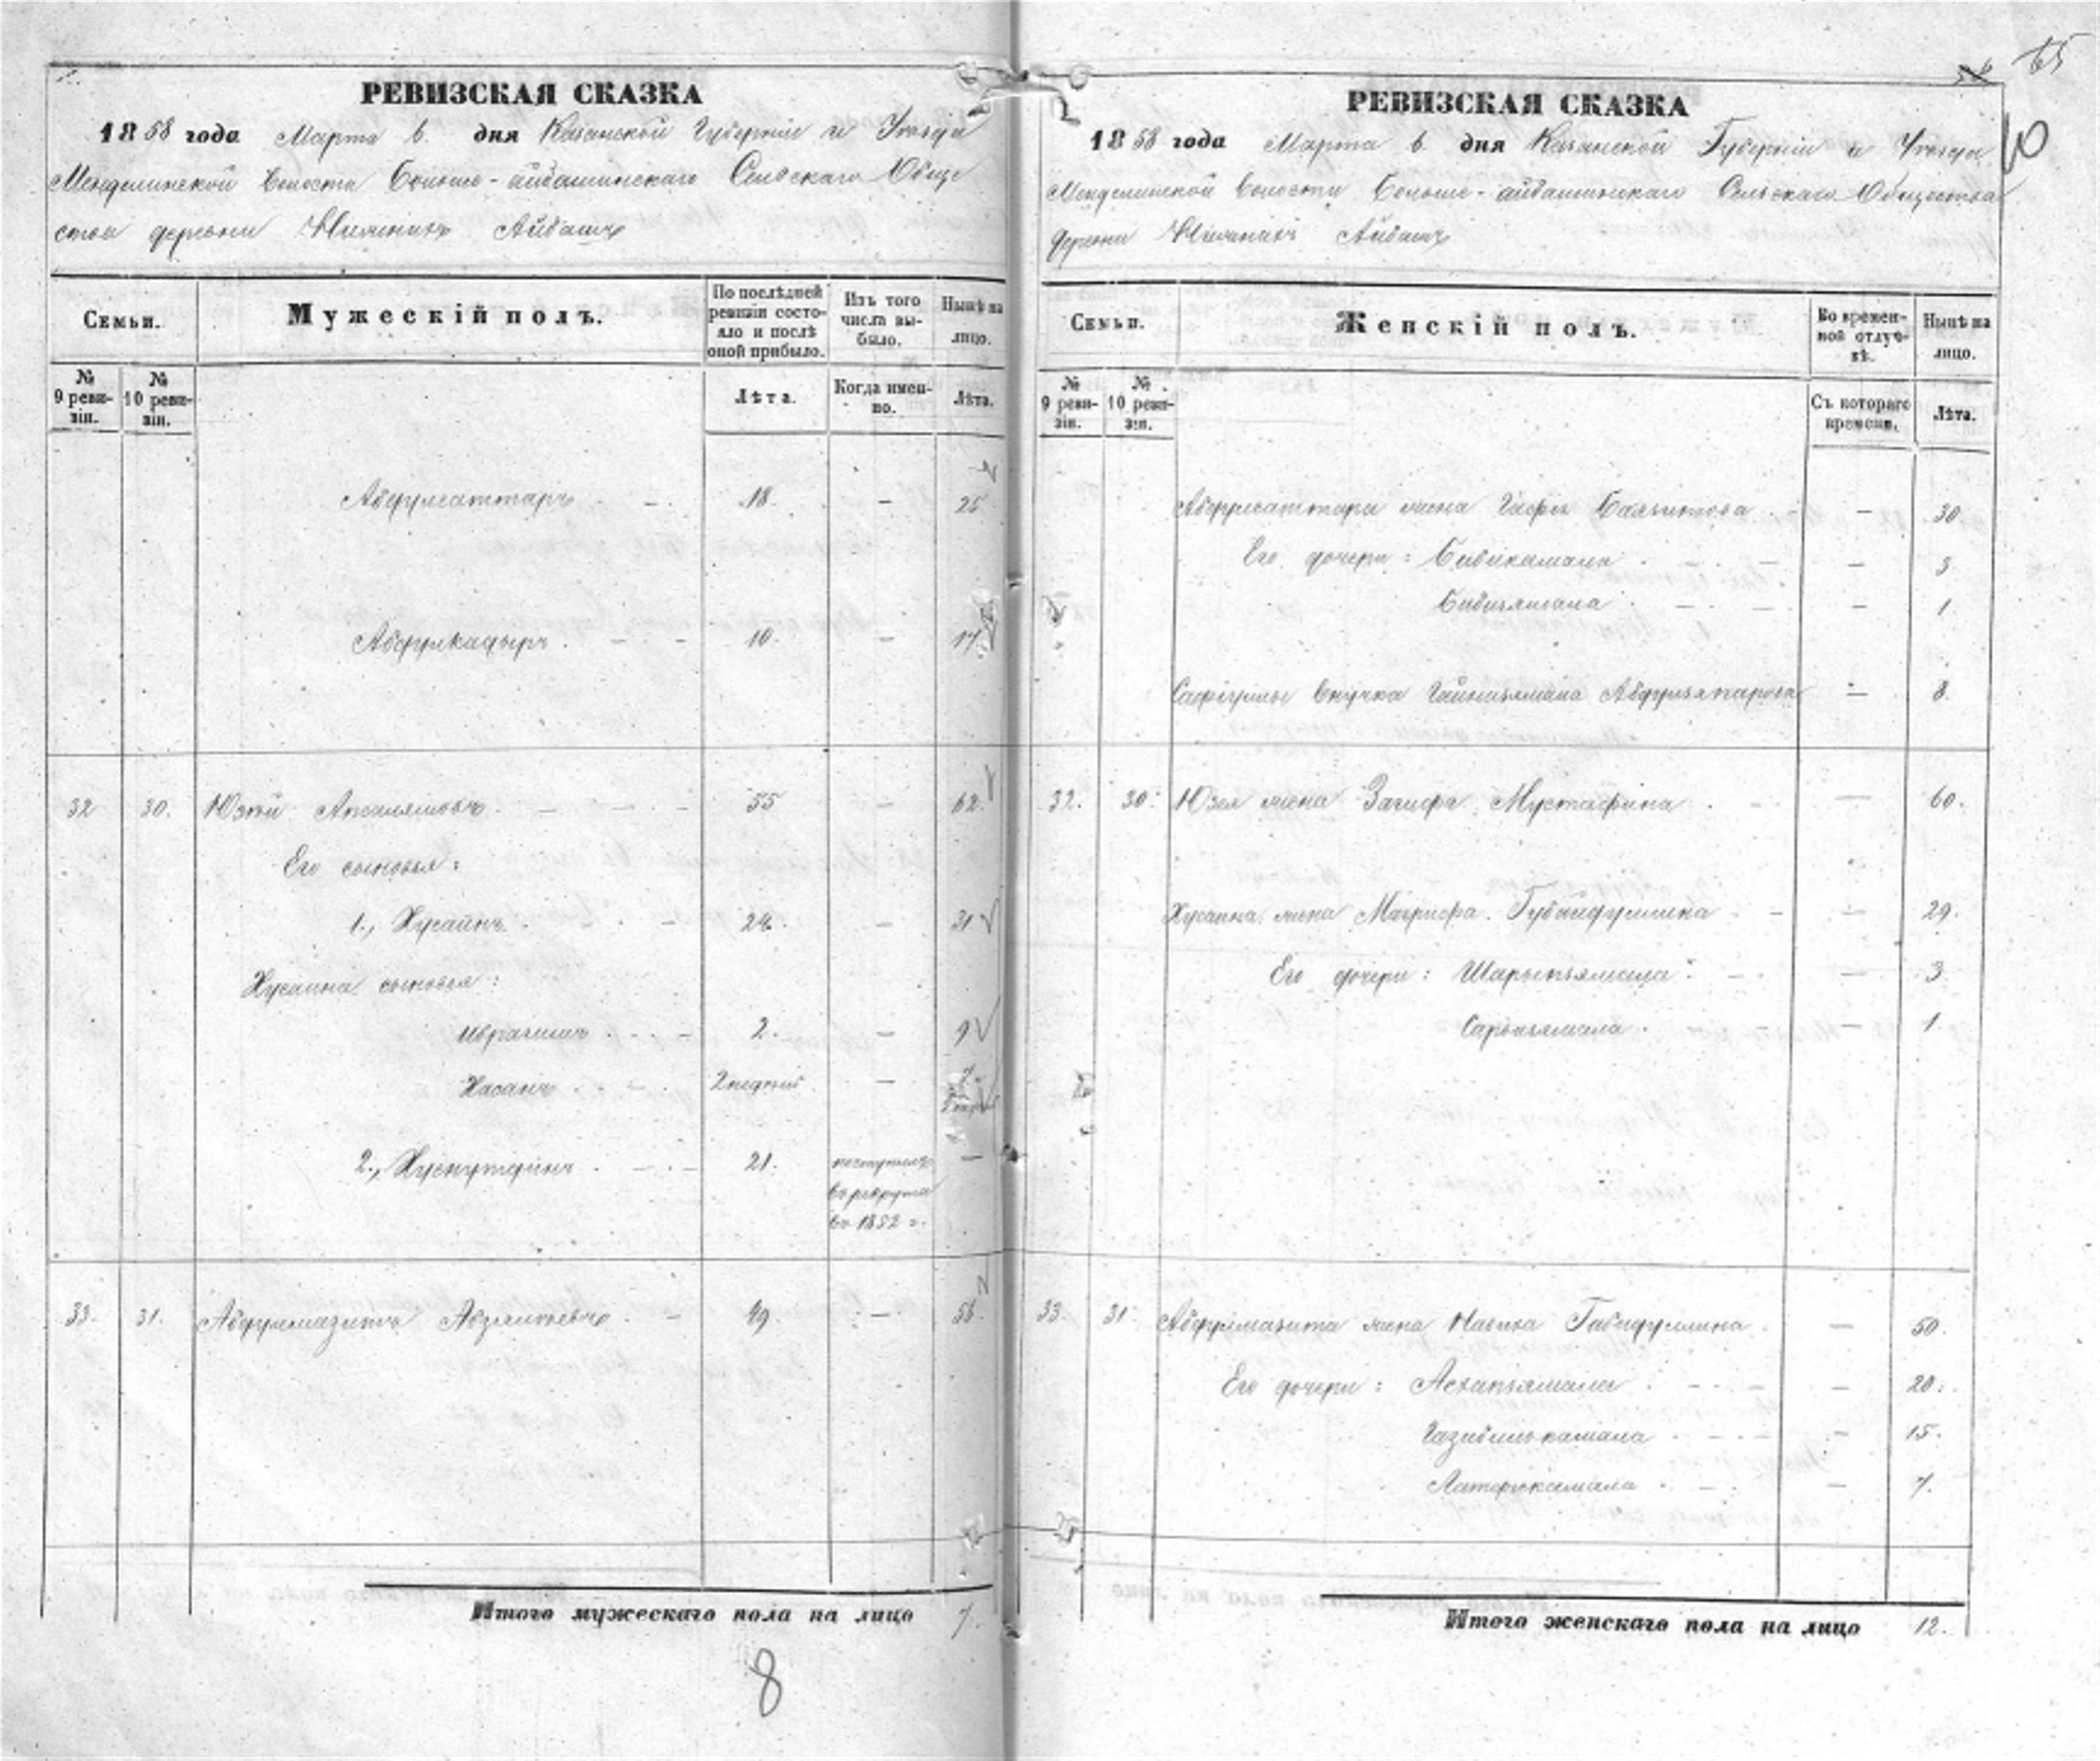 РЕВИЗСКАЯ СКАЗКА
1858 года Марта 6. дня Казанской Губернiи и Уѣзда
Менделинской Волости Больше-айбашинскаго Сельскаго Обще
ства деревни Нижнихъ Айбашъ
Семьи.
Мужескiй полъ.
По послѣдней ревизiи состояло и послѣ оной прибыло.
Изъ того числа выбыло.
Нынѣ на лицо.
№ 9 ревизiи.
№ 10 ревизiи.
Лѣта.
Когда именно.
Лѣта.
Абдулсаттаръ 18. — 25
Абдулкадыръ 10. — 17
32 30. Юзей 55 — 62.
Его сыновья:
1., Хусаинъ 24. — 31
Хусаина сыновья:
Ибрагимъ 2. — 9
Хасанъ —
2., Хуснутдинъ 21. поступилъ —
въ рекруты
въ 1852 г.
33. 31. 49 — 56.
Итого мужескаго пола на лицо 7.
8
56 65
РЕВИЗСКАЯ СКАЗКА
1858 года Марта 6. дня Казанской Губернiи и Уѣзда
Менделинской Волости Больше-айбашинскаго Сельскаго Общества
деревни Нижнихъ Айбашъ
Семьи.
Женскiй полъ.
Во временной отлучкѣ.
Нынѣ на лицо.
№ 9 ревизiи.
№ 10 ревизiи.
Съ котораго времени.
Лѣта.
Абдулсаттара жена — 30
Его дочери: Бибикамала — 5
Бибизямала — 1
внучка — 8.
32. 30. Юзея жена Загифа Мустафина — 60.
Хусаина жена Магруфа Губайдуллина — 29.
Его дочери: Шарыпзямала — 3.
Сарвизямала — 1
33. 31. жена Габидуллина — 50.
Его дочери: Асхапзямала — 20.
— 15.
— 7.
Итого женскаго пола на лицо 12.